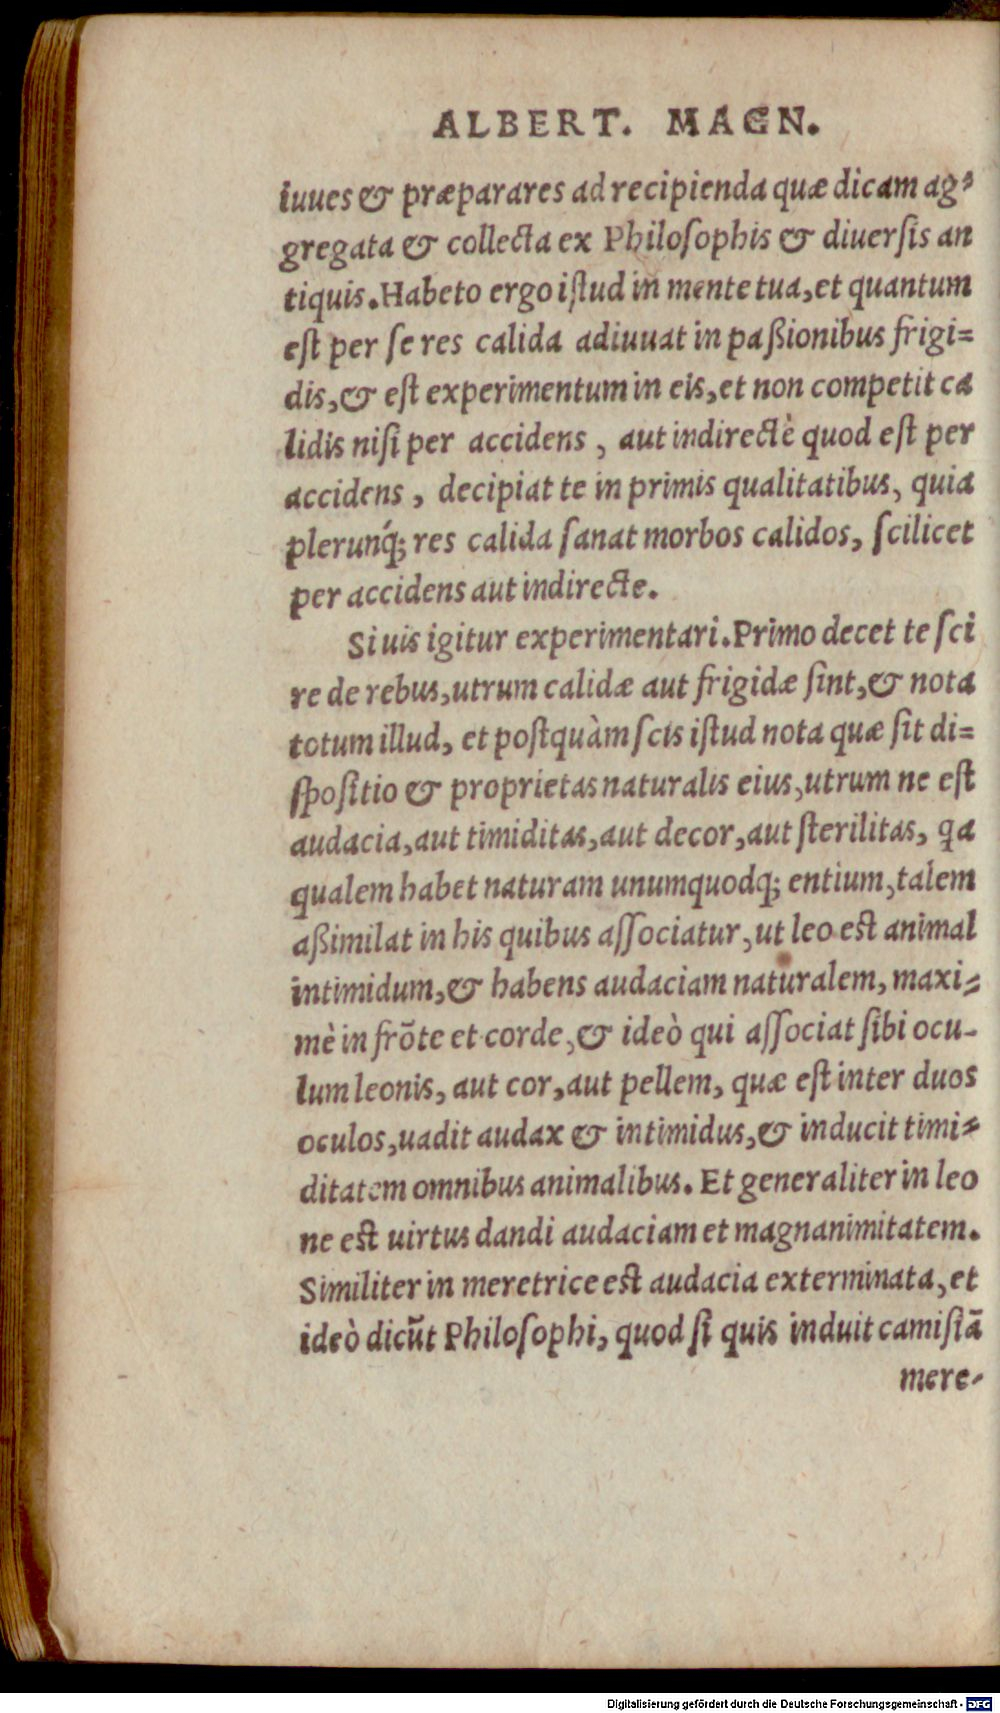 ALBERT. MAGN.
iuues & præparares ad recipienda quæ dicam ag-
gregata & collecta ex Philosophis & diuersis an
tiquis. Habeto ergo istud in mente tua, et quantum
est per se res calida adiuuat in paßionibus frigi=
dis, & est experimentum in eis, et non competit ca
lidis nisi per accidens, aut indirectè quod est per
accidens, decipiat te in primis qualitatibus, quia
plerunq́; res calida sanat morbos calidos, scilicet
per accidens aut indirecte.
Si uis igitur experimentari. Primo decet te sci
re de rebus, utrum calidæ aut frigidæ sint, & nota
totum illud, et postquàm scis istud nota quæ sit di=
spositio & proprietas naturalis eius, utrum ne est
audacia, aut timiditas, aut decor, aut sterilitas, qa
qualem habet naturam unumquodq; entium, talem
aßimilat in his quibus associatur, ut leo est animal
intimidum, & habens audaciam naturalem, maxi=
mè in frõte et corde, & ideò qui associat sibi ocu-
lum leonis, aut cor, aut pellem, quæ est inter duos
oculos, uadit audax & intimidus, & inducit timi-
ditatem omnibus animalibus. Et generaliter in leo
ne est uirtus dandi audaciam et magnanimitatem.
Similiter in meretrice est audacia exterminata, et
ideò dicũt Philosophi, quod si quis induit camisiã
mere-
Digitalisierung gefördert durch die Deutsche Forschungsgemeinschaft - DFG